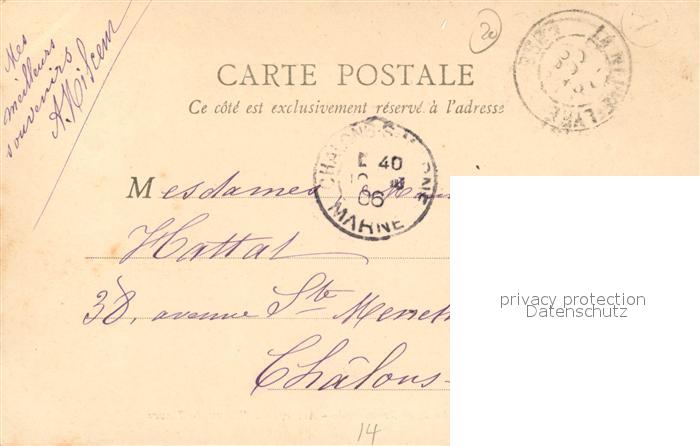 Mes
meilleurs
souvenirs
20
CARTE POSTALE
Ce côté est exclusivement réservé à l'adresse
CHALONS-S-MARNE
40
06
MARNE
Mesdames
Hattat
38, avenue Ste
Châlons-
privacy protection
Datenschutz
14